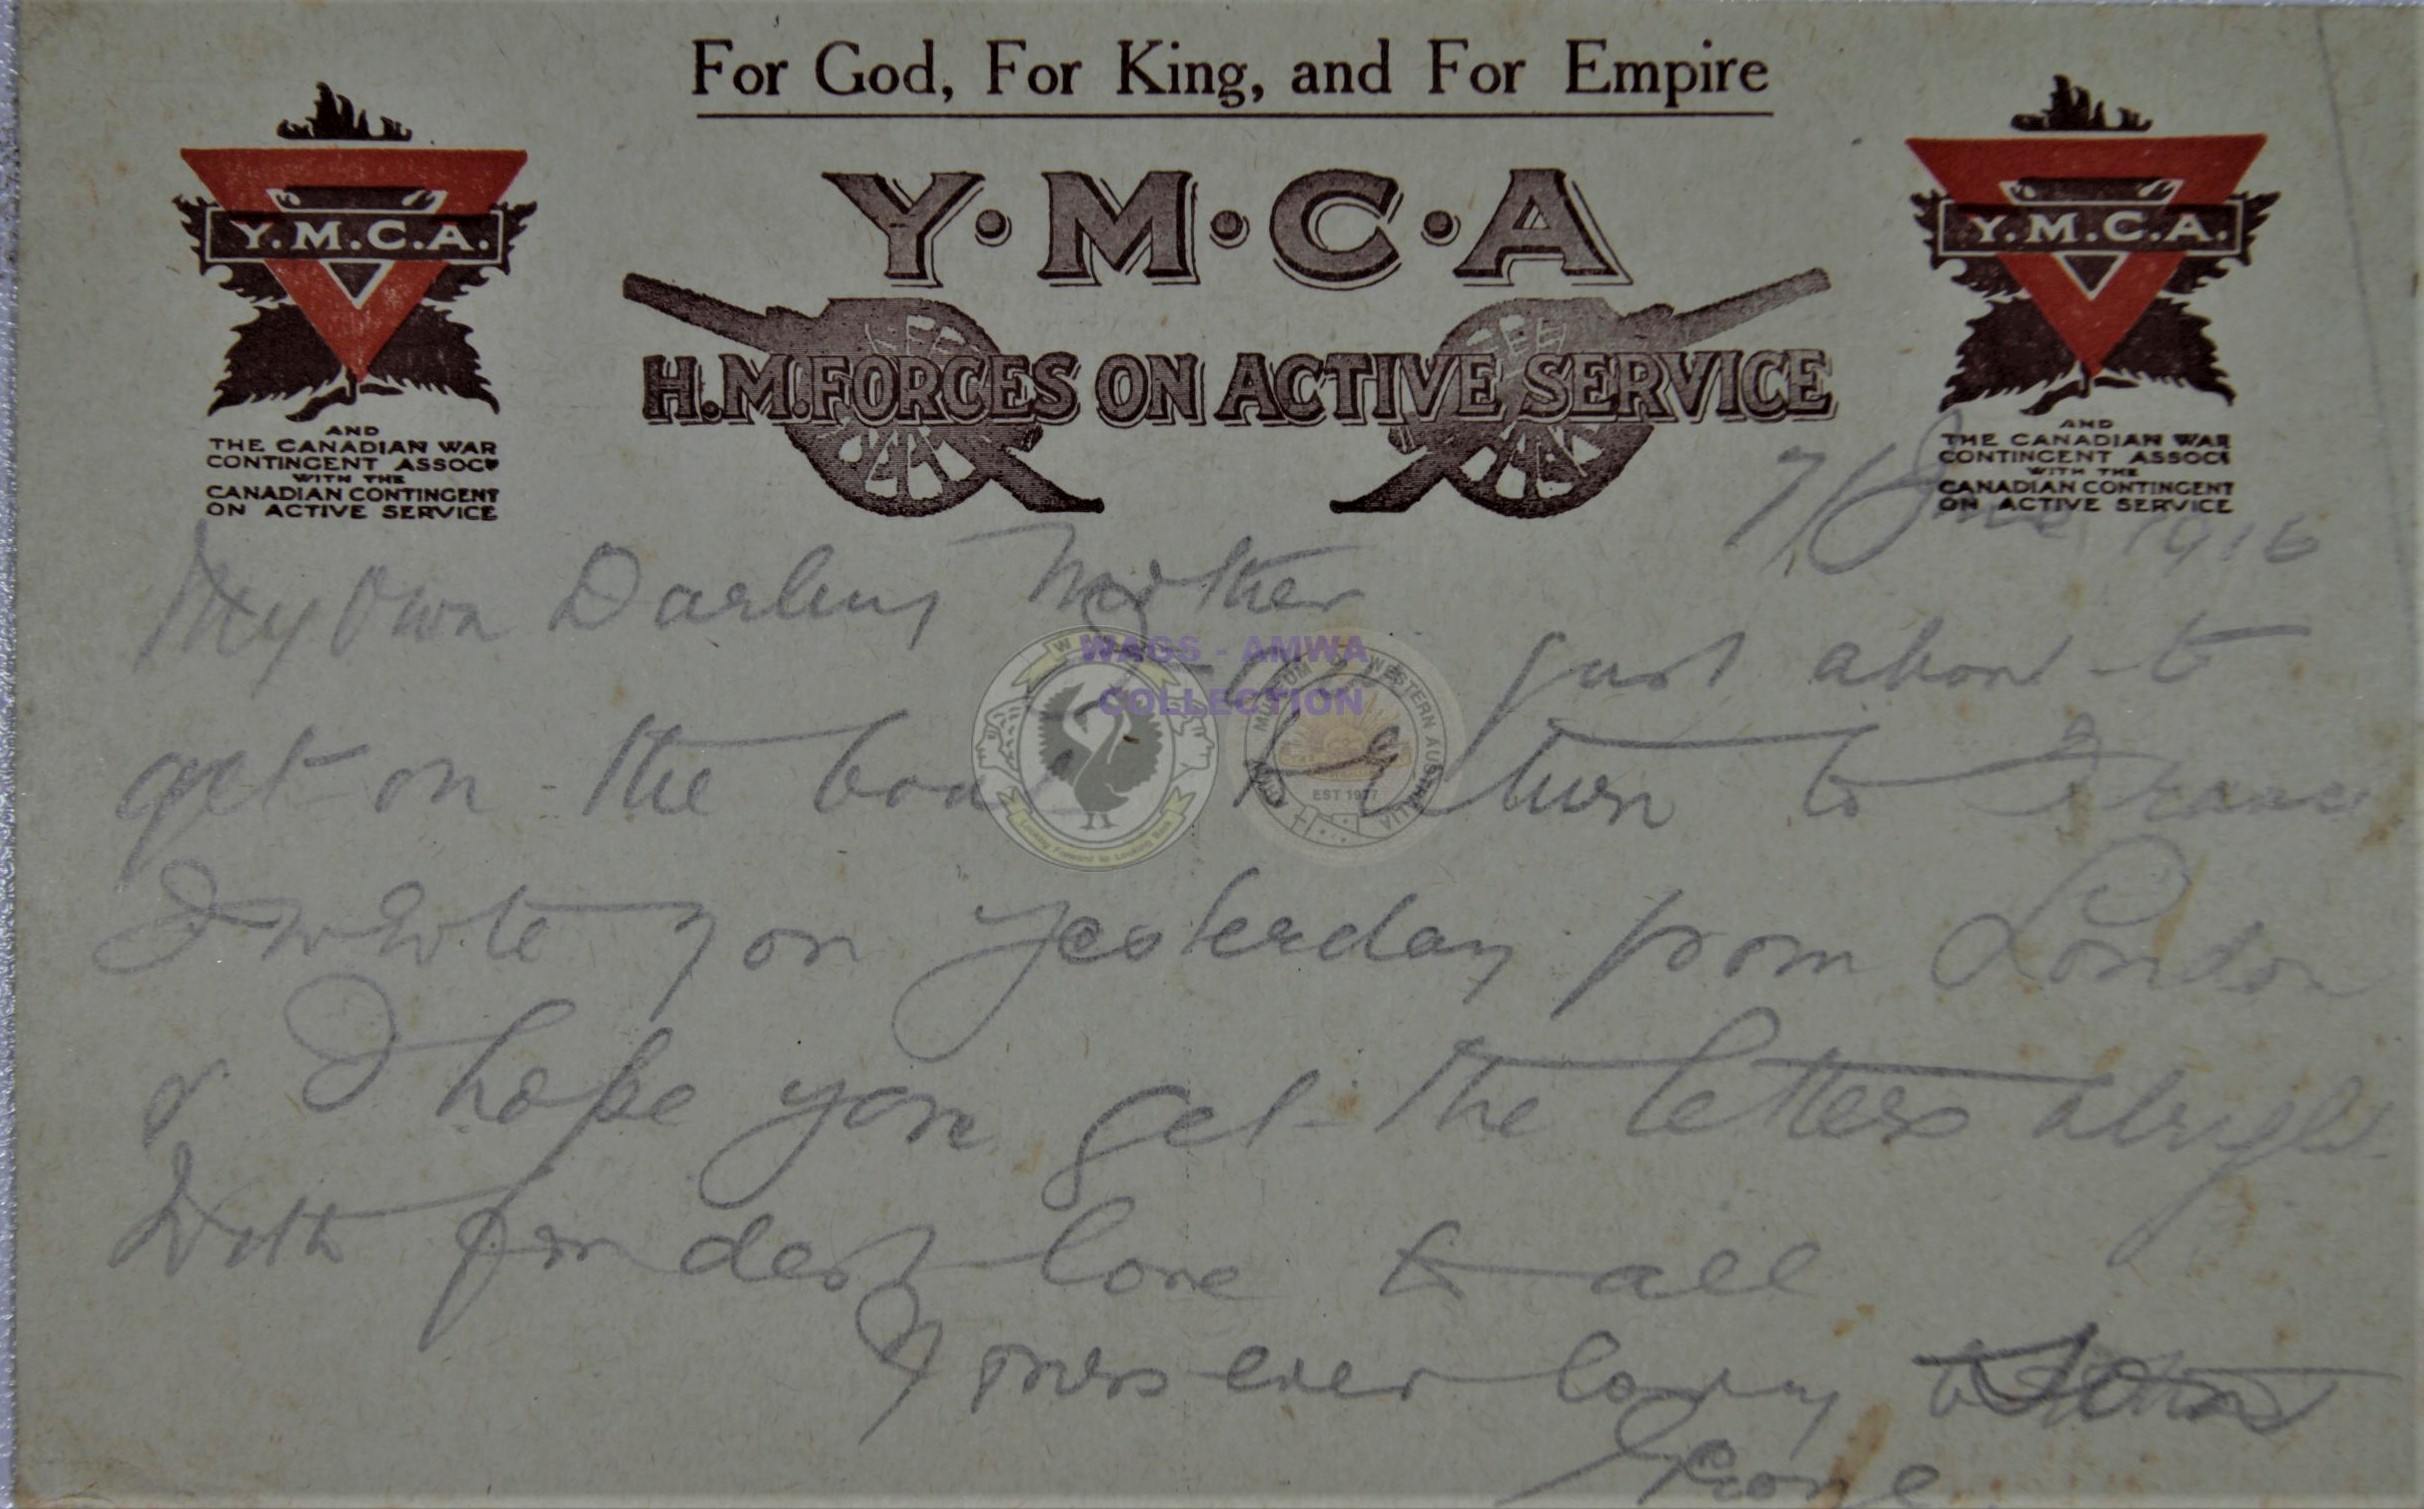 For God, For King, and For Empire
Y·M·C·A
H.M.FORCES ON ACTIVE SERVICE
Y.M.C.A.
AND
THE CANADIAN WAR
CONTINGENT ASSOCN
WITH THE
CANADIAN CONTINGENT
ON ACTIVE SERVICE
Y.M.C.A.
AND
THE CANADIAN WAR
CONTINGENT ASSOCN
WITH THE
CANADIAN CONTINGENT
ON ACTIVE SERVICE
7/June 1916
My Own Darling Mother
just about to
get on the boat to return to France
I wrote you yesterday from London
& I hope you get the letters alright
With fondest love to all
Yours ever loving
George
WAGS - AMWA
COLLECTION
Looking Forward to Looking Back
MUSEUM OF WESTERN AUSTRALIA
EST 1977